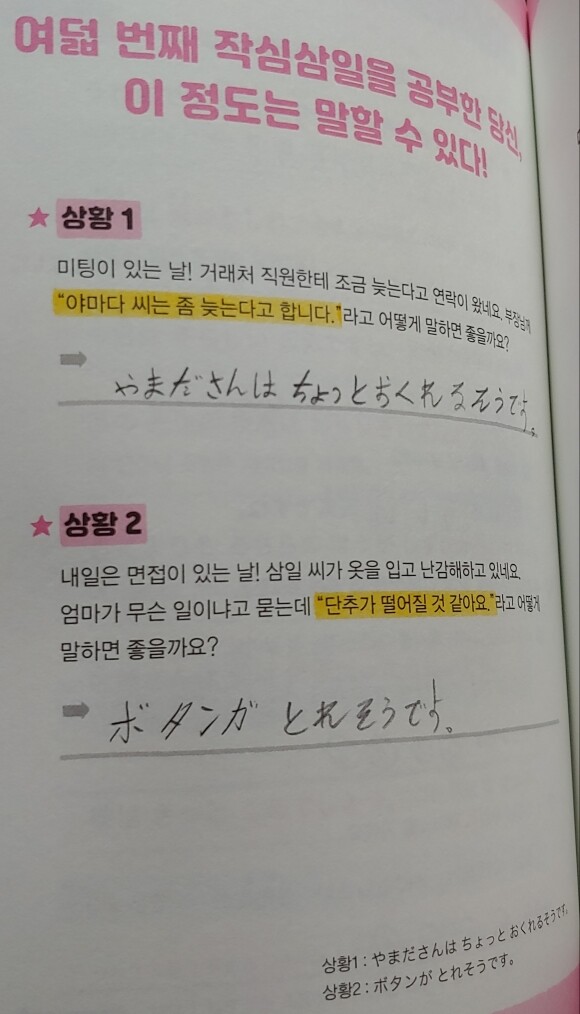 여덟 번째 작심삼일을 공부한 당신,
이 정도는 말할 수 있다!
★ 상황 1
미팅이 있는 날! 거래처 직원한테 조금 늦는다고 연락이 왔네요. 부장님께
“야마다 씨는 좀 늦는다고 합니다.”라고 어떻게 말하면 좋을까요?
➡ やまださんは ちょっとおくれるそうです。
★ 상황 2
내일은 면접이 있는 날! 삼일 씨가 옷을 입고 난감해하고 있네요.
엄마가 무슨 일이냐고 묻는데 “단추가 떨어질 것 같아요.”라고 어떻게
말하면 좋을까요?
➡ ボタンガ とれそうです。
상황1 : やまださんは ちょっと おくれるそうです。
상황2 : ボタンが とれそうです。